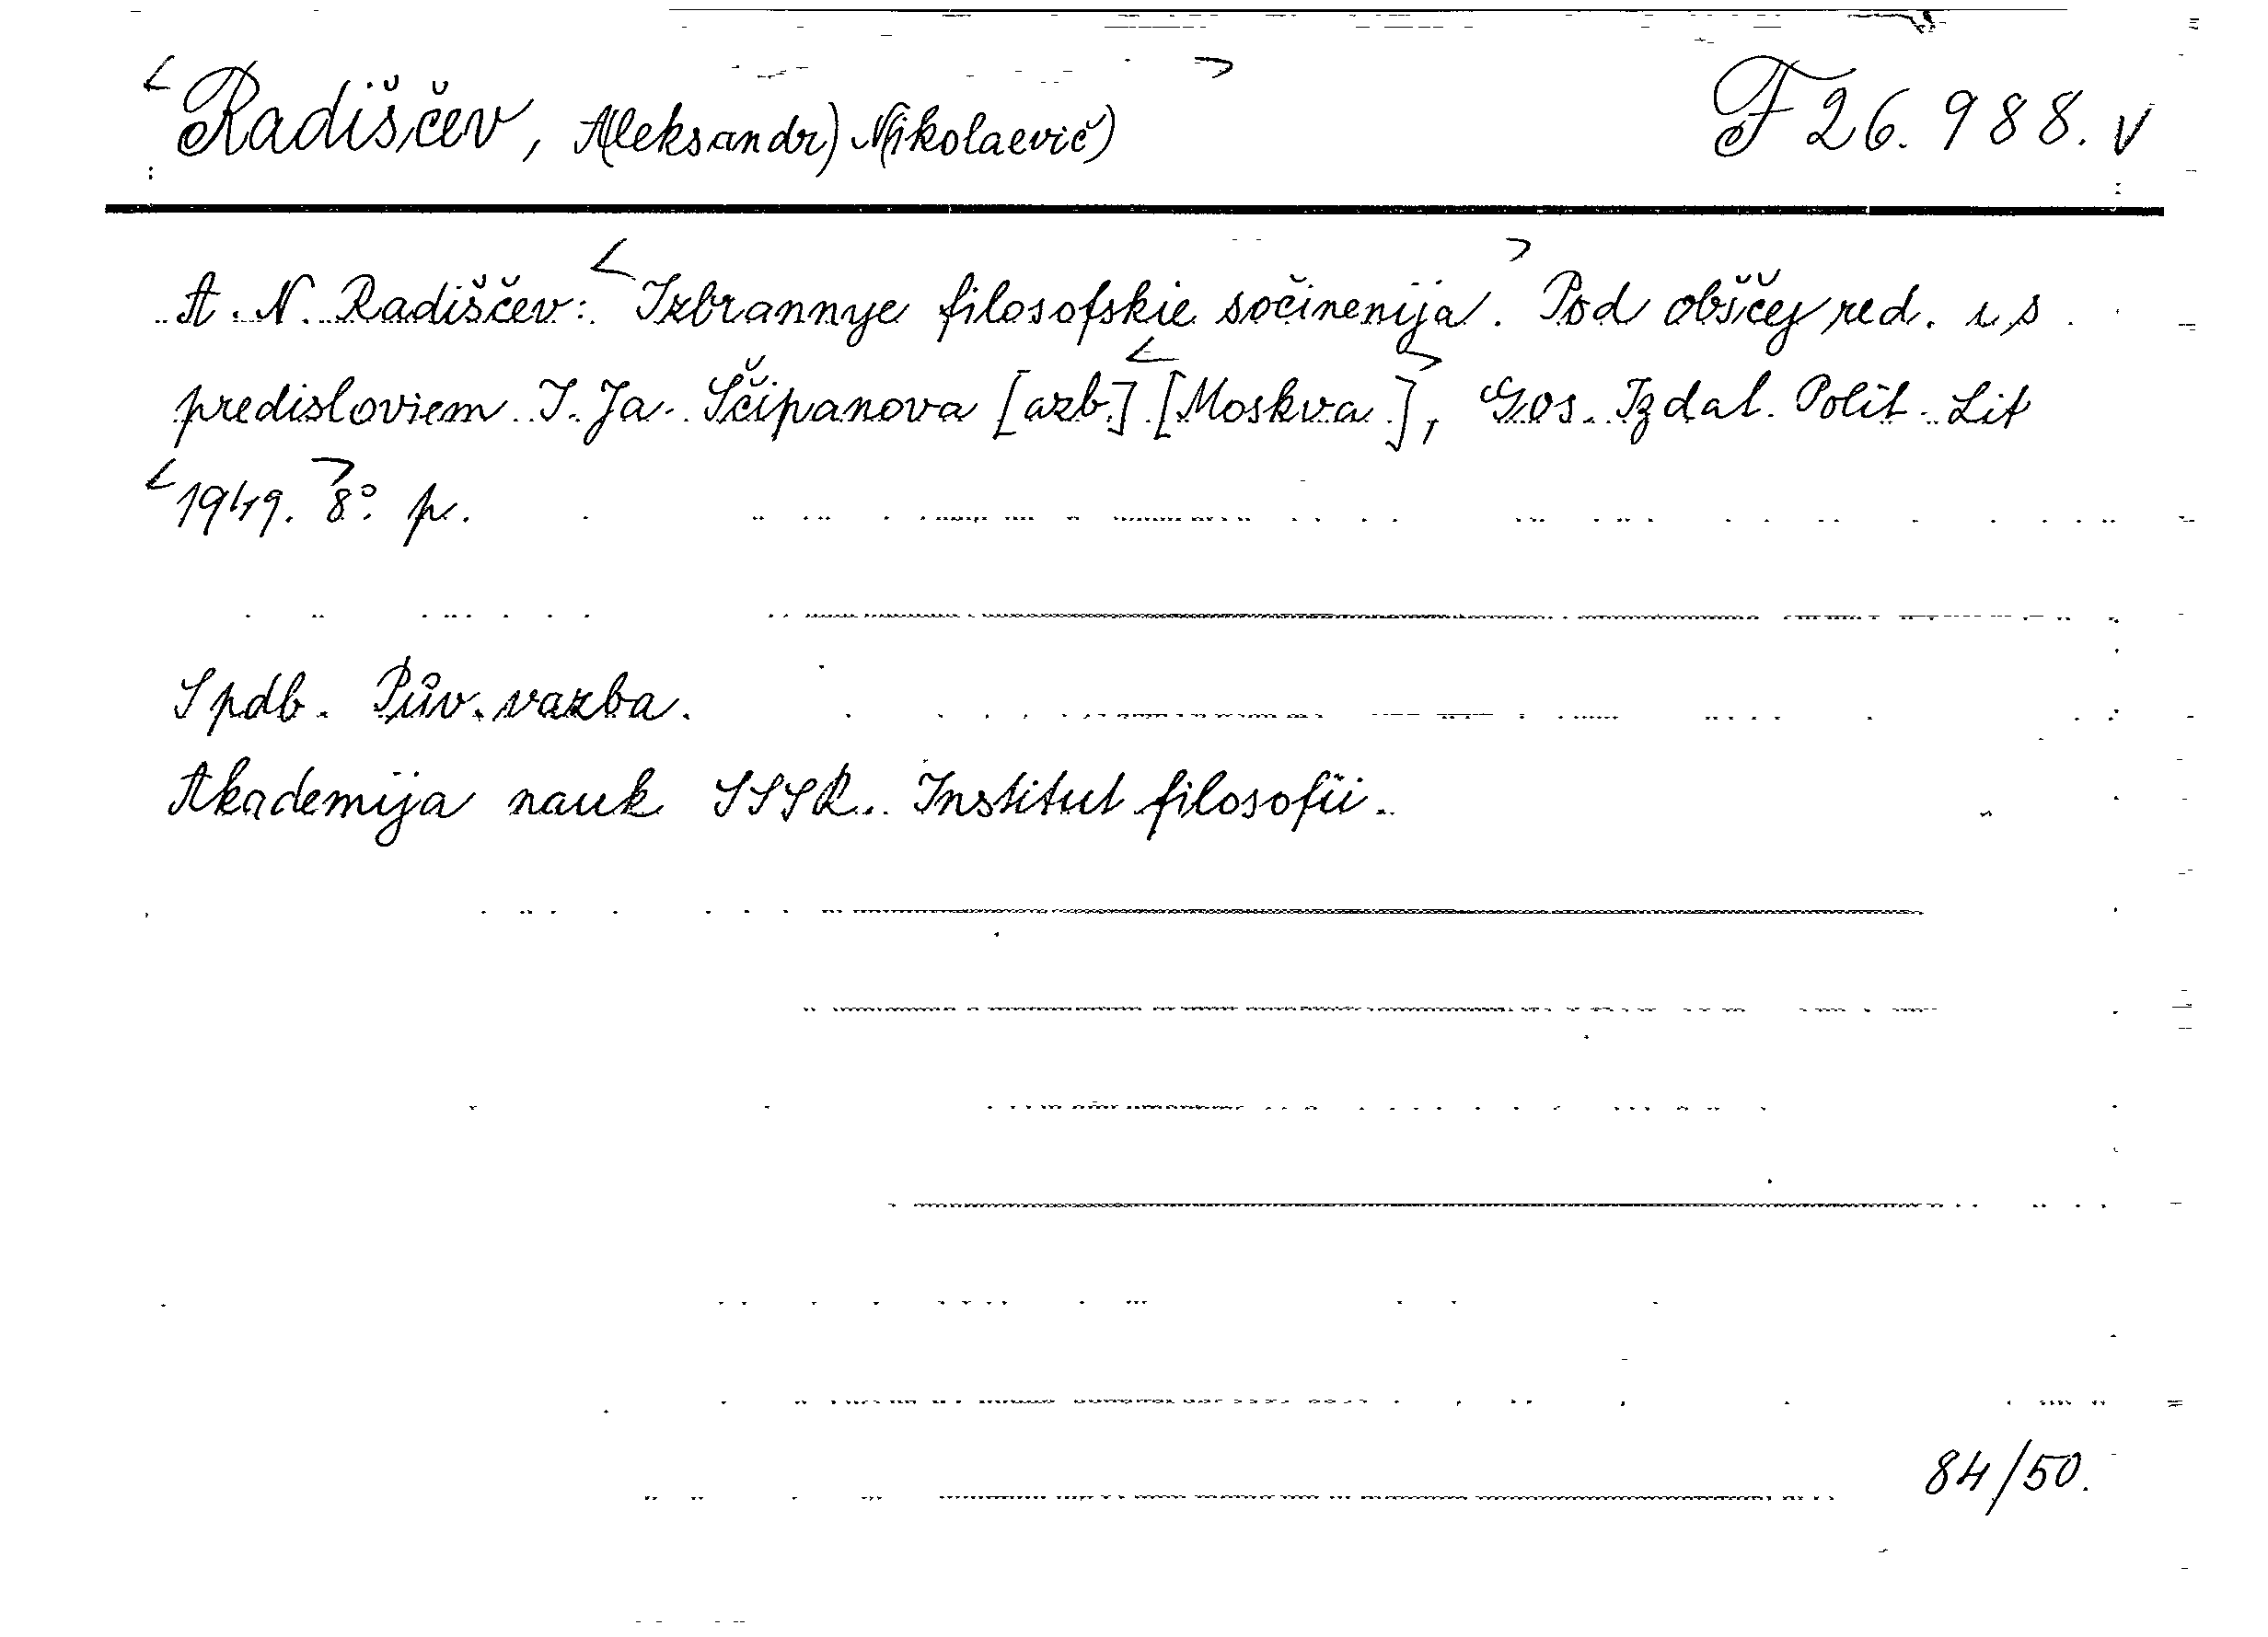 <Radiščev, A(leksandr) N(ikolaevič)> F 26.988. v
A. N. Radiščev: <Izbrannye filosofskie sočinenija>. Pod obščej red. i s
predisloviem I. Ja. Ščipanova [azb.] <[Moskva]>, Gos. Izdat. Polit. Lit
<1949.> 8°. p.
Spdb. Pův. vazba.
Akademija nauk SSSR. Institut filosofii.
84/50.